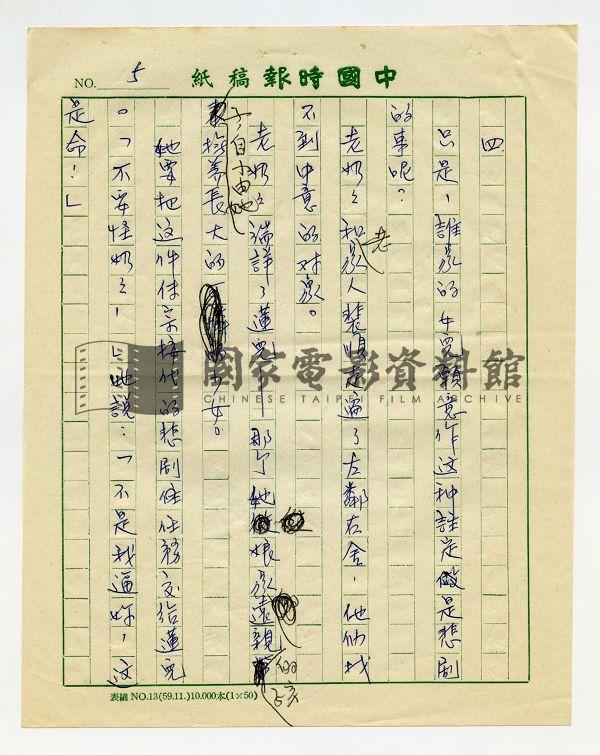 中國時報稿紙
NO. 5
四
只是，誰家的女兒願意作这种註定做是悲剧
的事呢？
老奶々和老家人裴順走遍了左鄰右舍，他們找
不到中意的对象。
老奶々端詳了蓮兒——那个她娘家遠親
子自小由她
撫養長大的少女。
她要把这件传宗接代的悲剧任务交給蓮兒
。「不要怪奶々，」她說：「不是我逼妳，这
是命！」
國家電影資料館
CHINESE TAIPEI FILM ARCHIVE
表總 NO.13(59.11.)10.000本(1×50)